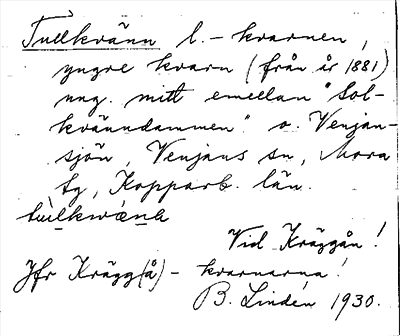 Tullkvänn l. - kvarnen,
yngre kvarn (från år 1881)
ung. mitt emellan "Sol-
kvänndammen" o. Venjan-
sjön, Venjans sn, Mora
tg, Kopparb. län.
tùlkwæ̀nₐ
Vid Kräggån!
Jfr Krägg(å) - kvarnarna!
B. Lindén 1930.